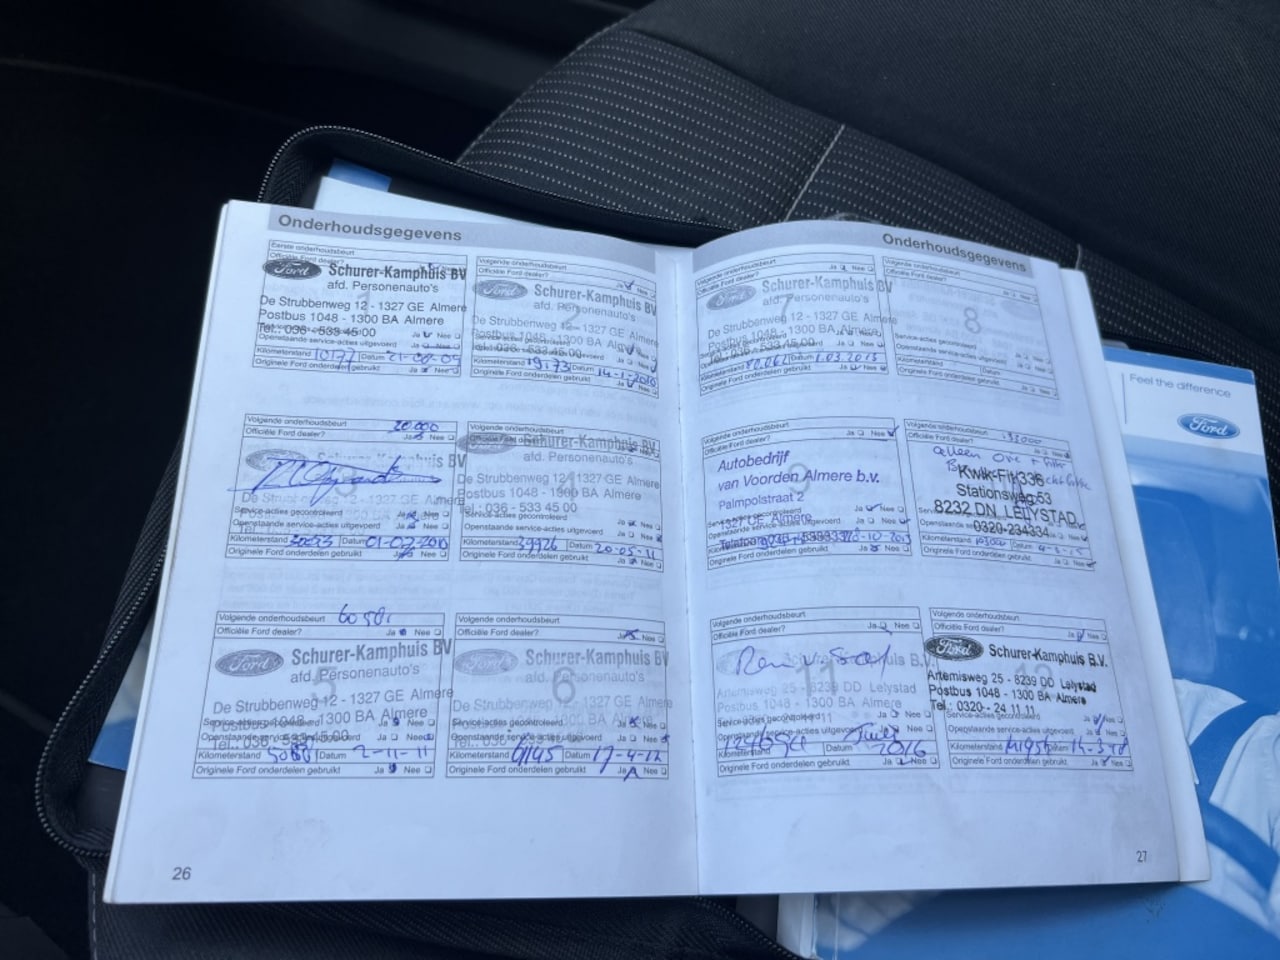 Onderhoudsgegevens
Eerste onderhoudsbeurt
Officiële Ford dealer?
Ford
Schurer-Kamphuis BV
afd. Personenauto's
De Strubbenweg 12 - 1327 GE Almere
Postbus 1048 - 1300 BA Almere
Tel.: 036 - 533 45 00
Openstaande service-acties uitgevoerd Ja Nee
Kilometerstand 10177 Datum
Originele Ford onderdelen gebruikt Ja Nee
Volgende onderhoudsbeurt
Officiële Ford dealer? Ja Nee
Ford
Schurer-Kamphuis BV
afd. Personenauto's
2
De Strubbenweg 12 - 1327 GE Almere
Postbus 1048 - 1300 BA Almere
Tel.: 036 - 533 45 00
Kilometerstand 19173 Datum 14-1-2010
Originele Ford onderdelen gebruikt Ja Nee
Volgende onderhoudsbeurt 30.000
Officiële Ford dealer? Ja Nee
Ford
BV
afd. Personenauto's
3
De Strubbenweg 12 - 1327 GE Almere
Service-acties gecontroleerd Ja Nee
Openstaande service-acties uitgevoerd Ja Nee
Kilometerstand Datum
Originele Ford onderdelen gebruikt Ja Nee
Volgende onderhoudsbeurt
Officiële Ford dealer?
Schurer-Kamphuis BV
afd. Personenauto's
4
De Strubbenweg 12 - 1327 GE Almere
Postbus 1048 - 1300 BA Almere
Tel.: 036 - 533 45 00
Service-acties gecontroleerd Ja Nee
Openstaande service-acties uitgevoerd Ja Nee
Kilometerstand 39926 Datum 20-05-11
Originele Ford onderdelen gebruikt Ja Nee
Volgende onderhoudsbeurt
Officiële Ford dealer? Ja Nee
Ford
Schurer-Kamphuis BV
afd. Personenauto's
5
De Strubbenweg 12 - 1327 GE Almere
Postbus 1048 - 1300 BA Almere
Service-acties gecontroleerd Ja Nee
Openstaande service-acties uitgevoerd Ja Nee
Kilometerstand Datum 2-11-11
Originele Ford onderdelen gebruikt Ja Nee
Volgende onderhoudsbeurt
Officiële Ford dealer? Ja Nee
Ford
Schurer-Kamphuis BV
afd. Personenauto's
6
De Strubbenweg 12 - 1327 GE Almere
Service-acties gecontroleerd Ja Nee
Openstaande service-acties uitgevoerd Ja Nee
Kilometerstand Datum 17-4-12
Originele Ford onderdelen gebruikt Ja Nee
26
Onderhoudsgegevens
Volgende onderhoudsbeurt
Officiële Ford dealer? Ja Nee
Ford
Schurer-Kamphuis BV
afd. Personenauto's
7
De Strubbenweg 12 - 1327 GE Almere
Postbus 1048 - 1300 BA Almere
Tel.: 036 - 533 45 00
Kilometerstand Datum 1.03.2013
Originele Ford onderdelen gebruikt Ja Nee
Volgende onderhoudsbeurt
Officiële Ford dealer? Ja Nee
8
Service-acties gecontroleerd
Openstaande service-acties uitgevoerd Ja Nee
Kilometerstand Datum
Originele Ford onderdelen gebruikt Ja Nee
Volgende onderhoudsbeurt
Officiële Ford dealer? Ja Nee
Autobedrijf
van Voorden Almere b.v.
9
Palmpolstraat 2
1327 GE Almere
Openstaande service-acties uitgevoerd Ja Nee
Originele Ford onderdelen gebruikt Ja Nee
Volgende onderhoudsbeurt
Officiële Ford dealer?
Kwik-Fit 336
Stationsweg 53
8232 DN LELYSTAD
0320-234334
Kilometerstand Datum
Originele Ford onderdelen gebruikt Ja Nee
Volgende onderhoudsbeurt
Officiële Ford dealer? Ja Nee
11
Artemisweg 25 - 8239 DD Lelystad
Postbus 1048 - 1300 BA Almere
Service-acties gecontroleerd Ja Nee
Openstaande service-acties uitgevoerd Ja Nee
Kilometerstand 2016
Originele Ford onderdelen gebruikt Ja Nee
Volgende onderhoudsbeurt
Officiële Ford dealer? Ja Nee
Ford
Schurer-Kamphuis B.V.
Artemisweg 25 - 8239 DD Lelystad
Postbus 1048 - 1300 BA Almere
Tel.: 0320 - 24 11 11
Service-acties gecontroleerd Ja Nee
Openstaande service-acties uitgevoerd Ja Nee
Kilometerstand Datum
Originele Ford onderdelen gebruikt Ja Nee
27
Feel the difference
Ford